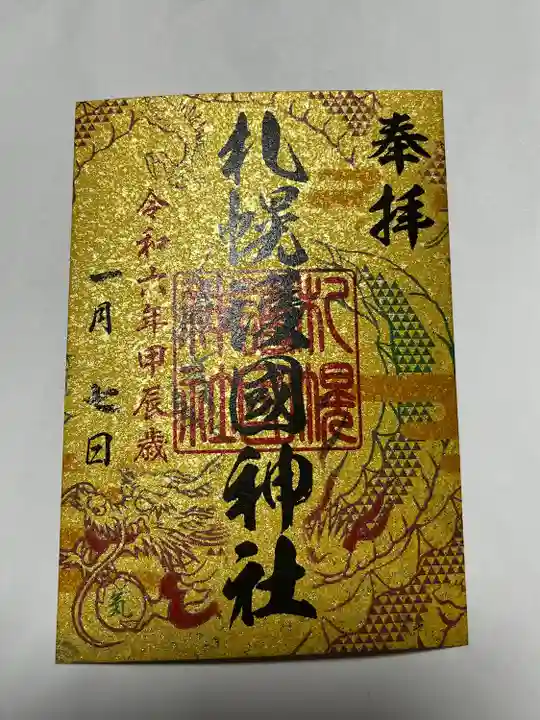 奉拝
札幌護國神社
札幌
護國
神社
令和六年甲辰歳
一月七日
気